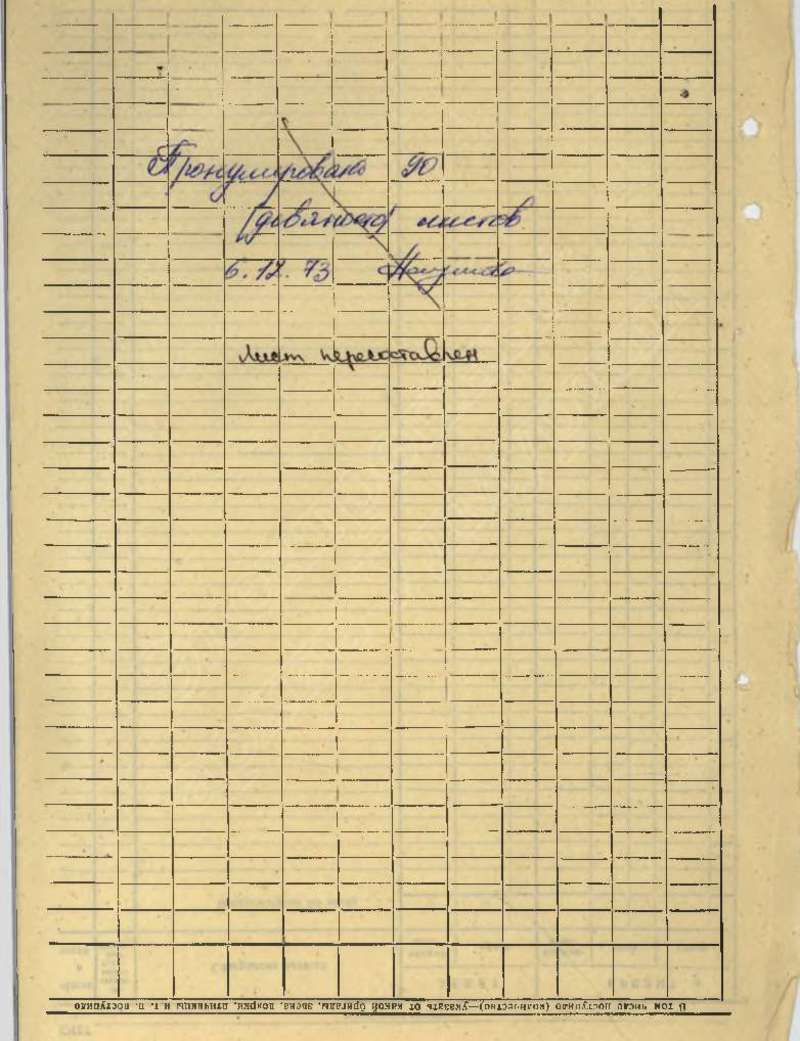 Пронумеровано 90
(девяносто) листов
6.12.73
Лист пересоставлен
В том числе поступило (количество)—указать от какой бригады, звена, доярки, птичницы и т. п. поступило